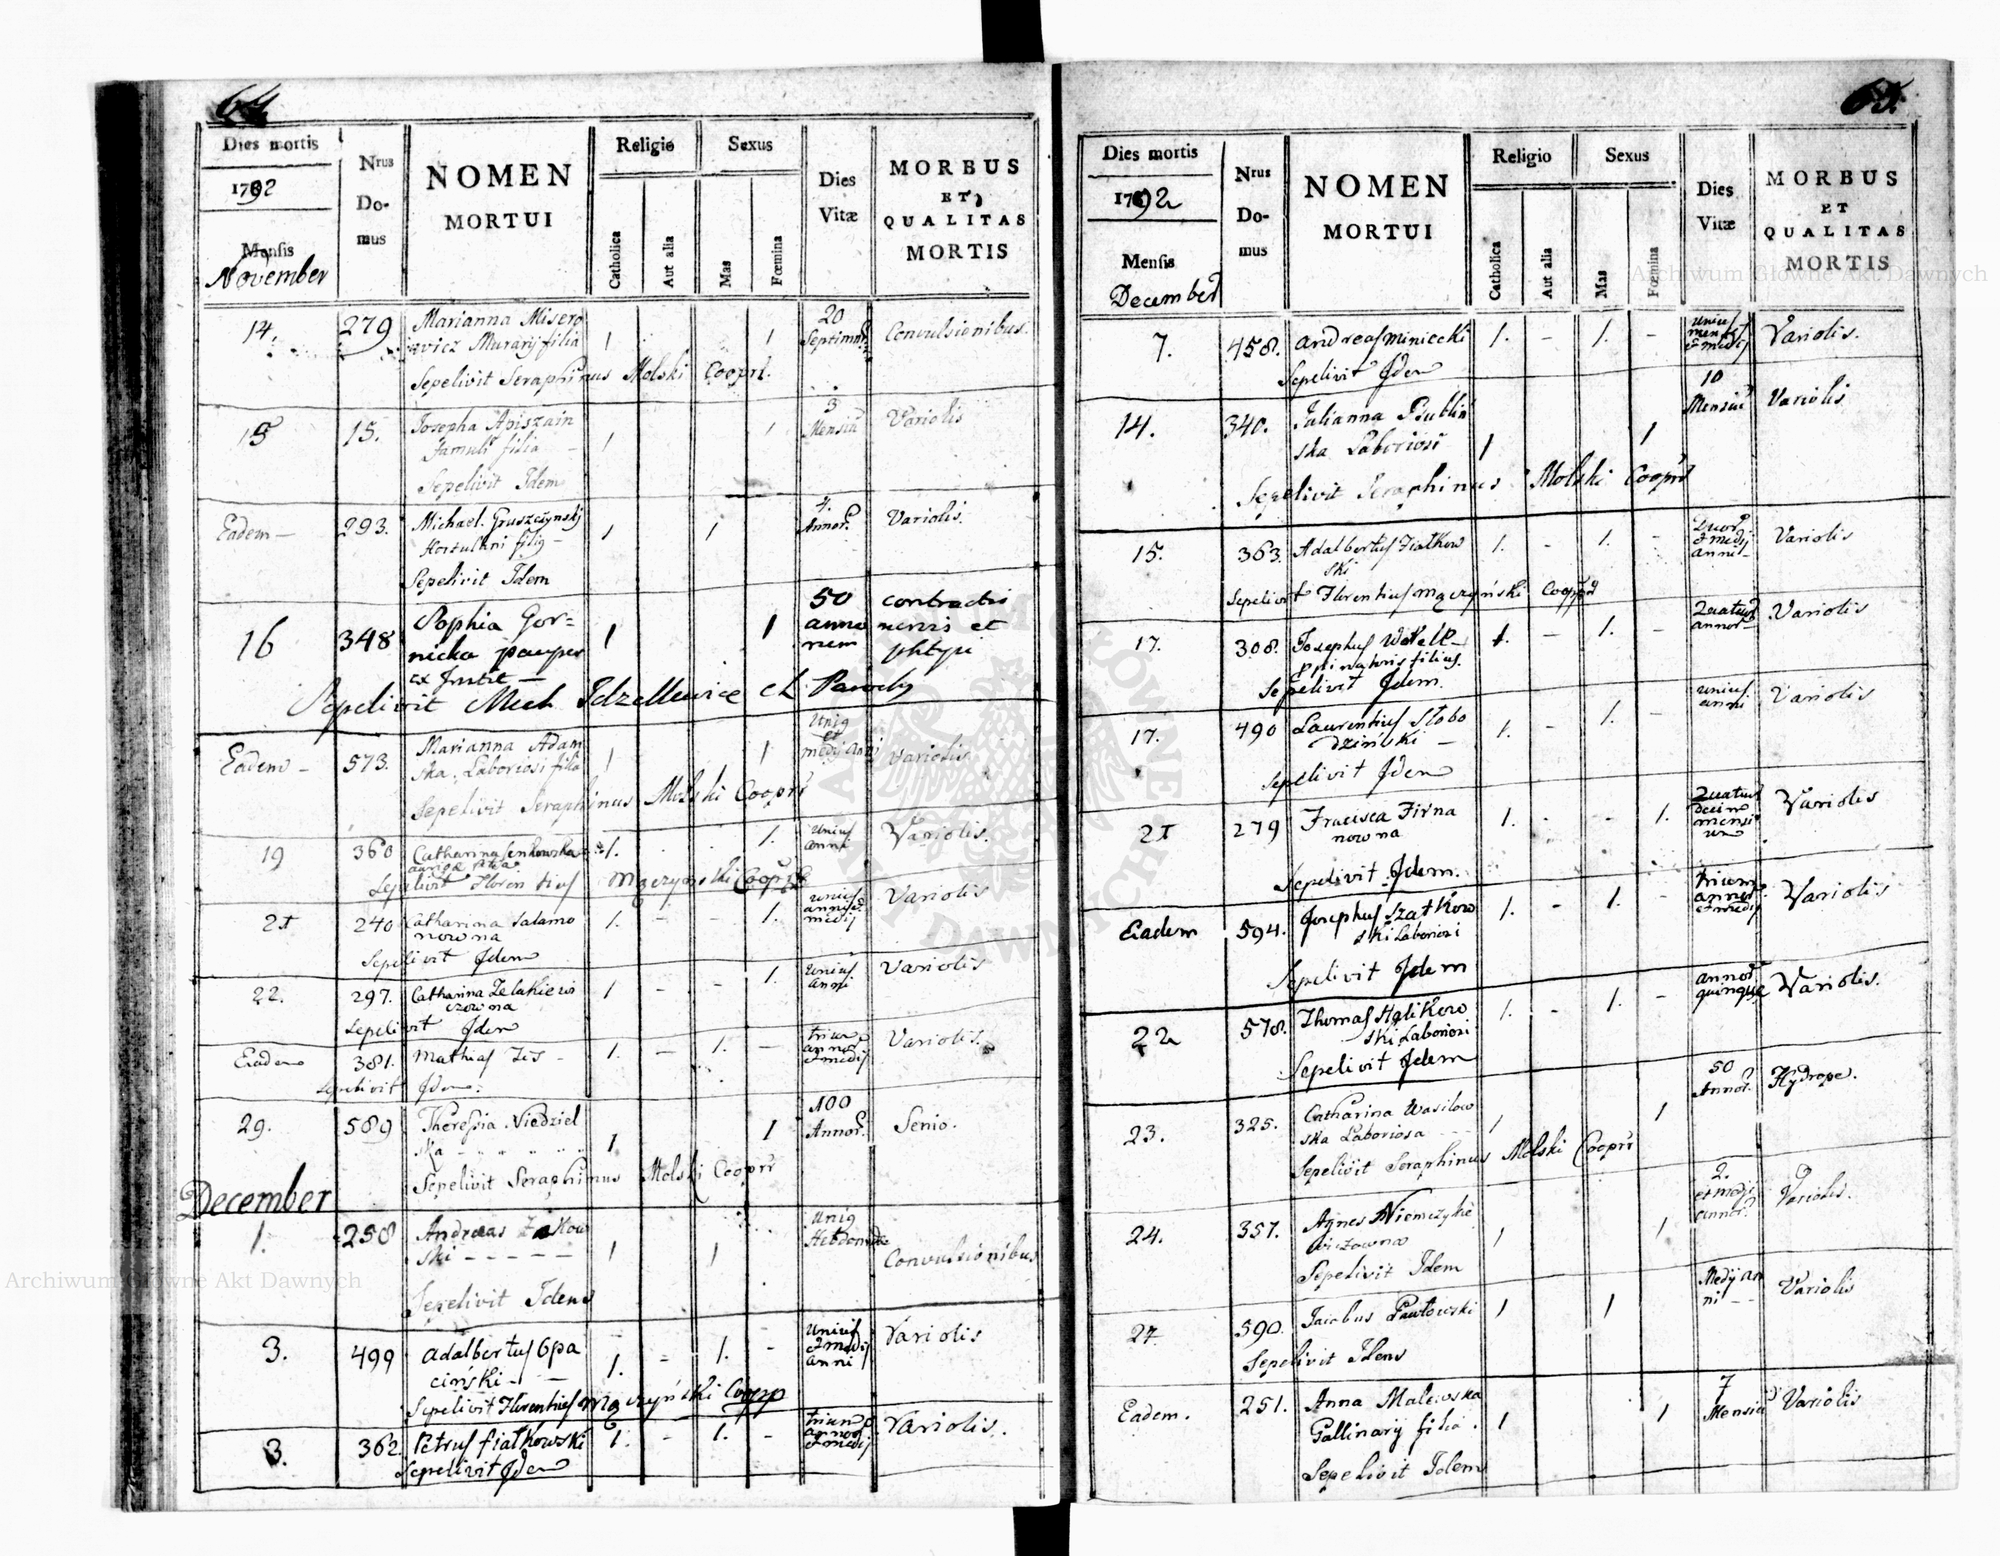 64.
Dies mortis
1792
Mensis
November
Nrus
Do-
mus
NOMEN
MORTUI
Religio
Catholica
Aut alia
Sexus
Mas
Fœmina
Dies
Vitæ
MORBUS
ET
QUALITAS
MORTIS
14. 279 Marianna Misero 1 1 20 Convulsionibus.
wicz Murarij filia Septimar.
Sepelivit Seraphinus Molski Coopr.
15 15. Josepha Apiszain 1 1 3 Variolis
Famuli filia Mensiu
Sepelivit Idem
Eadem 293. Michael Gruszczynski 1 1 4. Variolis.
Hortulani filig Annor.
Sepelivit Idem
16 348 Sophia Gor= 1 1 50 contractis
nicka pauper anno nervis et
ex rum phtysi
Sepelivit Mich
Eadem 573. Marianna Adam 1 1 Unig et Variolis
ska Laboriosi filia medij Anni
Sepelivit Seraphinus Molski Coopr
19 360 Catharina Senkowska 1. 1. Unius Variolis.
anni
Sepelivit Florentius Mączyński Coopr
21 240 Catharina Salamo 1. - - 1. Unius Variolis
nowna anni et medij
Sepelivit Idem
22. 297. Catharina Zelakiewi 1 - - 1. Unius Variolis
czowna anni
Sepelivit Idem
Eadem 381. Mathias Zis 1. - 1. - trium Variolis.
annor et medij
Sepelivit Idem
29. 589 Theressia Niedziel 1 1 100 Senio.
ska Annor.
Sepelivit Seraphinus Molski Coopr
December
1. 258 Andreas Żukow 1 1 Unig Convulsionibus
ski Hebdomadæ
Sepelivit Idem
3. 499 Adalbertus Opa 1. - 1. - Unius Variolis
ciński et medij anni
Sepelivit Florentius Mączyński Coop
3. 362 Petrus Fiałkowski 1. - 1. - trium Variolis.
annor et medij
Sepelivit Idem
65.
Dies mortis
1792
Mensis
December
Nrus
Do-
mus
NOMEN
MORTUI
Religio
Catholica
Aut alia
Sexus
Mas
Fœmina
Dies
Vitæ
MORBUS
ET
QUALITAS
MORTIS
7. 458. Andreas Miniecki 1. - 1. - Unius Variolis.
mensis et medij
Sepelivit Idem
14. 340. Julianna Dublin 1 1 10 Variolis
ska Laboriosi Mensiu
Sepelivit Seraphinus Molski Coopr
15. 363. Adalbertus Fiałkow 1. - 1. - Duor Variolis
ski et medij anni
Sepelivit Florentius Mączyński Coopr
17. 308. Josephus 1. - 1. - Quatuor Variolis
filius. annor
Sepelivit Idem.
17. 490 Laurentius Słobo 1. - 1. - Unius Variolis
dziński anni
Sepelivit Idem
21 279 Fracisca Firna 1. - - 1. Quatuor Variolis
nowna decim mensi um
Sepelivit Idem.
Eadem 594. Josephus Szatkow 1. - 1. - trium Variolis
ski Laboriosi annor et medij
Sepelivit Idem
22 578. Thomas Halikow 1. - 1. - annor Variolis.
ski Laboriosi quinque
Sepelivit Idem
23. 325. Catharina Wasilow 1 1 50 Hydrope.
ska Laboriosa Annor.
Sepelivit Seraphinus Molski Coopr
24. 357. Agnes Niemczyke 1 1 2. Variolis.
wiczowna et medij annor
Sepelivit Idem
27 590. Jacobus Pawłowski 1 1 Medij an Variolis
ni
Sepelivit Idem
Eadem. 251. Anna Malewska 1 1 7 Variolis
Gallinarij filia. Mensiu
Sepelivit Idem
Archiwum Główne Akt Dawnych
Archiwum Główne Akt Dawnych
ARCHIWUM GŁÓWNE AKT DAWNYCH